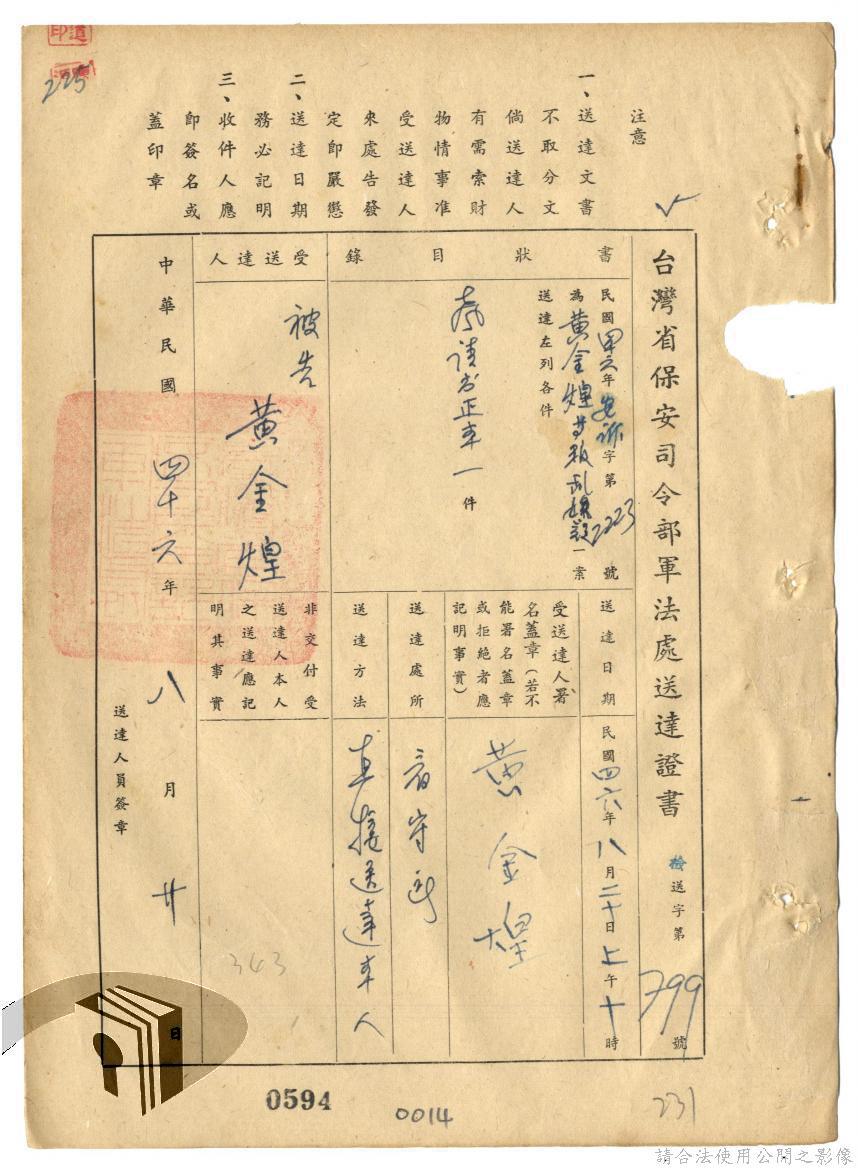 注意
一、送達文書
不取分文
倘送達人
有需索財
物情事准
受送達人
來處告發
定即嚴懲
二、送達日期
務必記明
三、收件人應
即簽名或
蓋印章
225
台灣省保安司令部軍法處送達證書 檢送字第799號
書狀目錄
民國四六年安訴字第2223號
為黃金煌等叛亂嫌疑一案
送達左列各件
書正本一件
受送達人
被告 黃金煌
送達日期
民國四六年八月二十日上午十時
受送達人署
名蓋章(若不
能署名蓋章
或拒絕者應
記明事實)
黃金煌
送達處所
看守所
送達方法
直接送達本人
非交付受
送達人本人
之送達應記
明其事實
343
中華民國四十六年八月廿日
送達人員簽章
0594
0014
231
請合法使用公開之影像